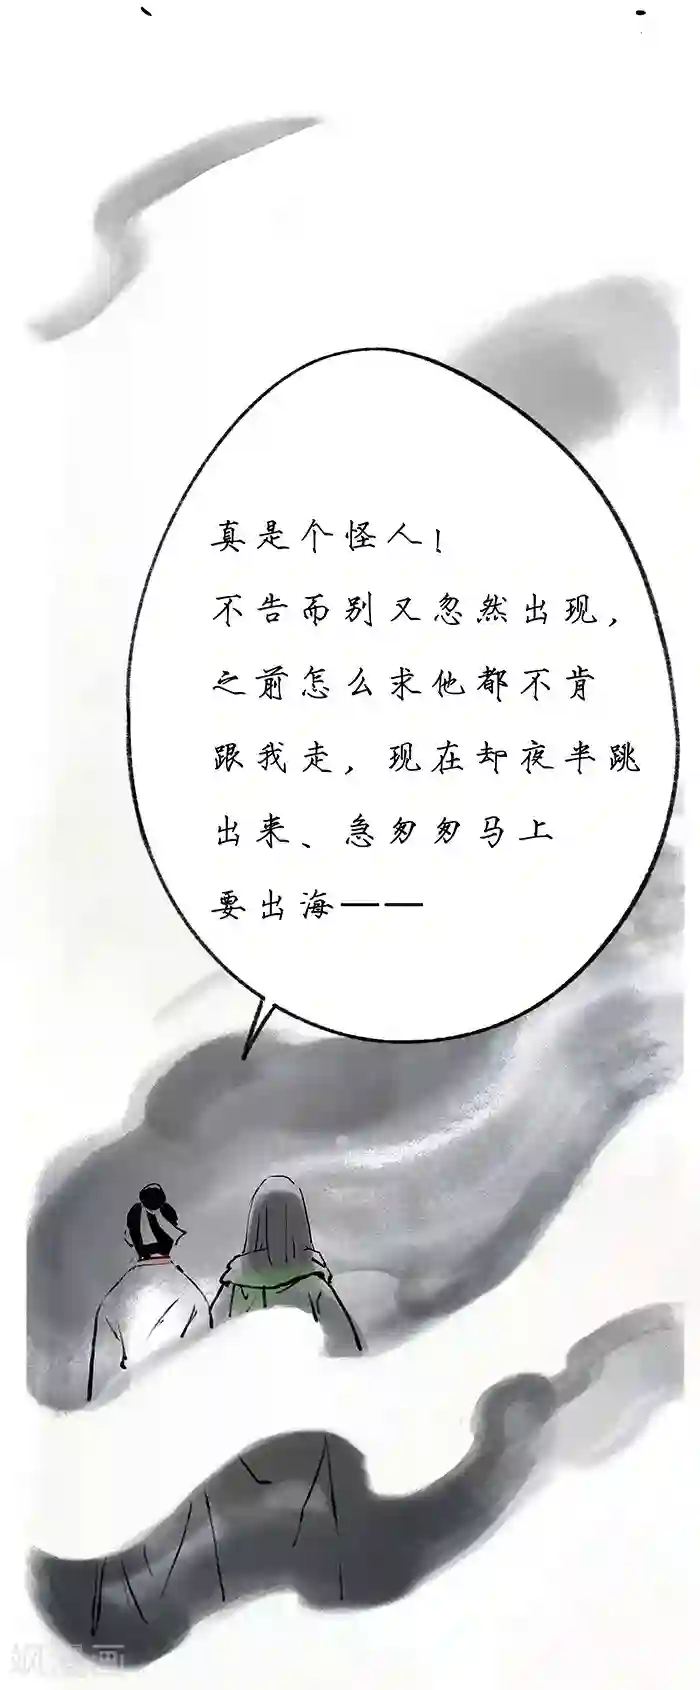 真是个怪人！
不告而别又忽然出现，
之前怎么求他都不肯
跟我走，现在却夜半跳
出来、急匆匆马上
要出海——
飒漫画